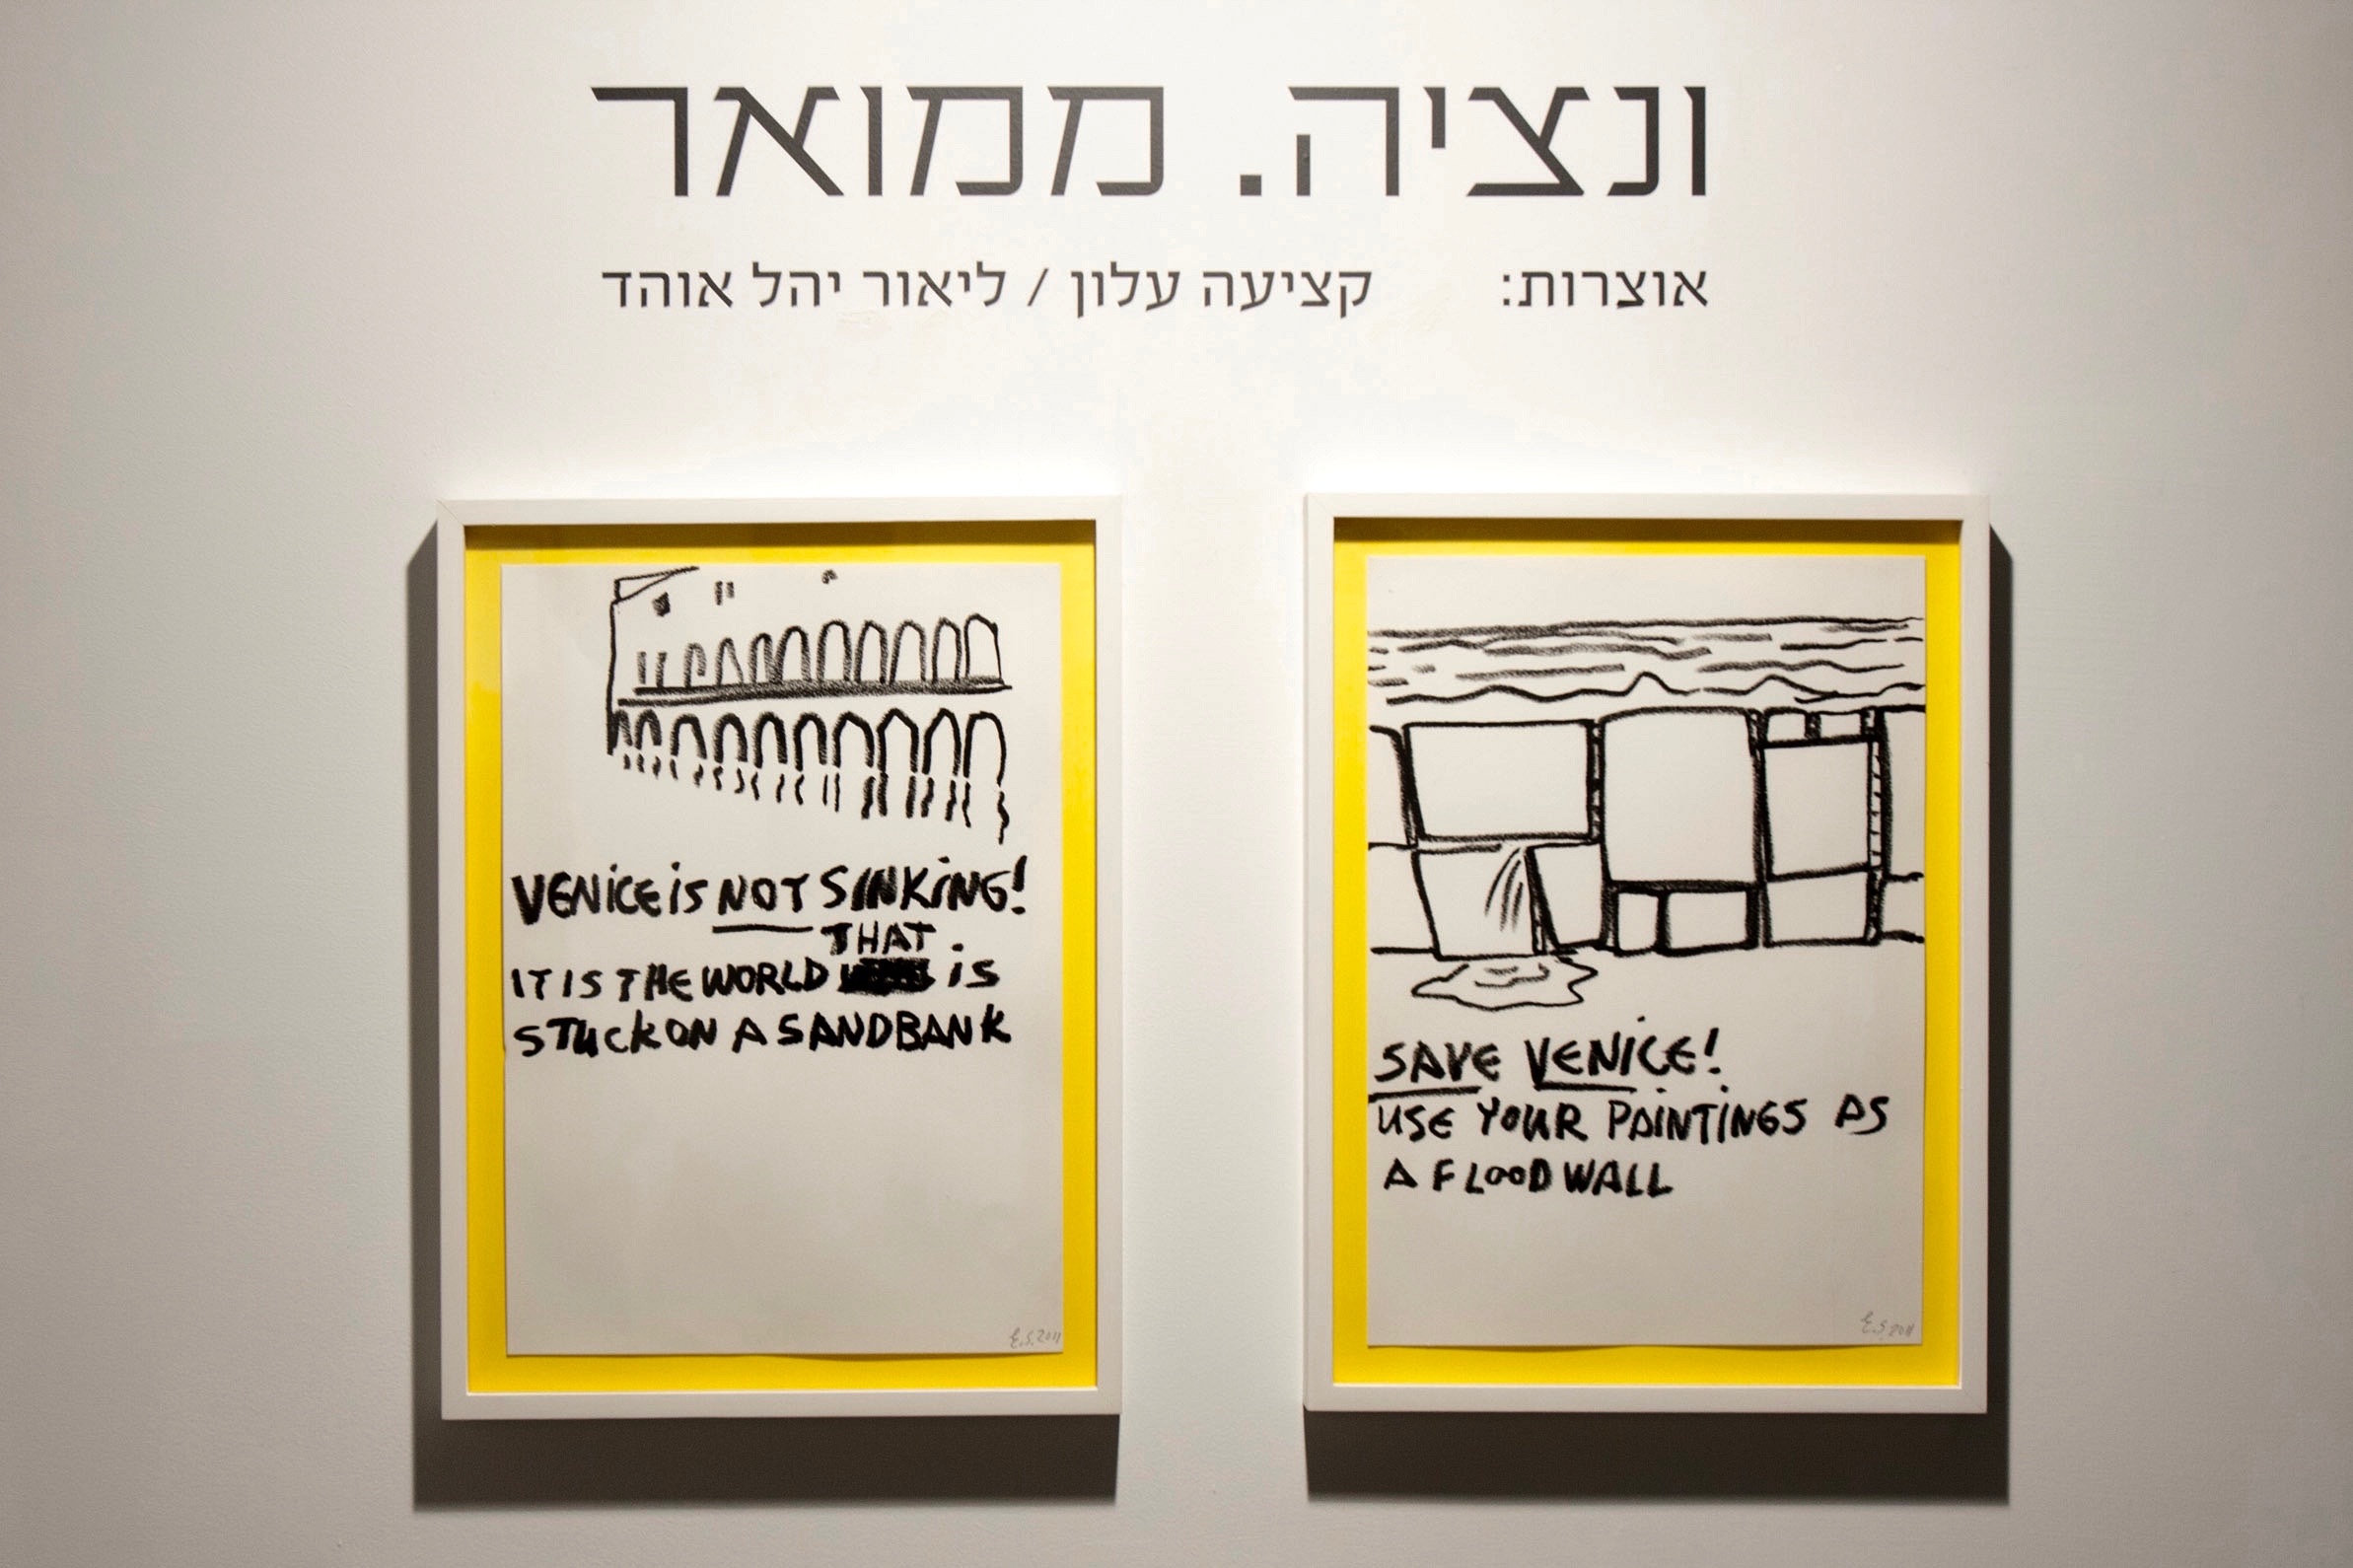 ונציה. ממואר
אוצרות: קציעה עלון / ליאור יהל אוהד
VENICE IS NOT SINKING!
THAT
IT IS THE WORLD IS
STUCK ON A SANDBANK
E.S. 2011
SAVE VENICE!
USE YOUR PAINTINGS AS
A FLOOD WALL
E.S. 2011